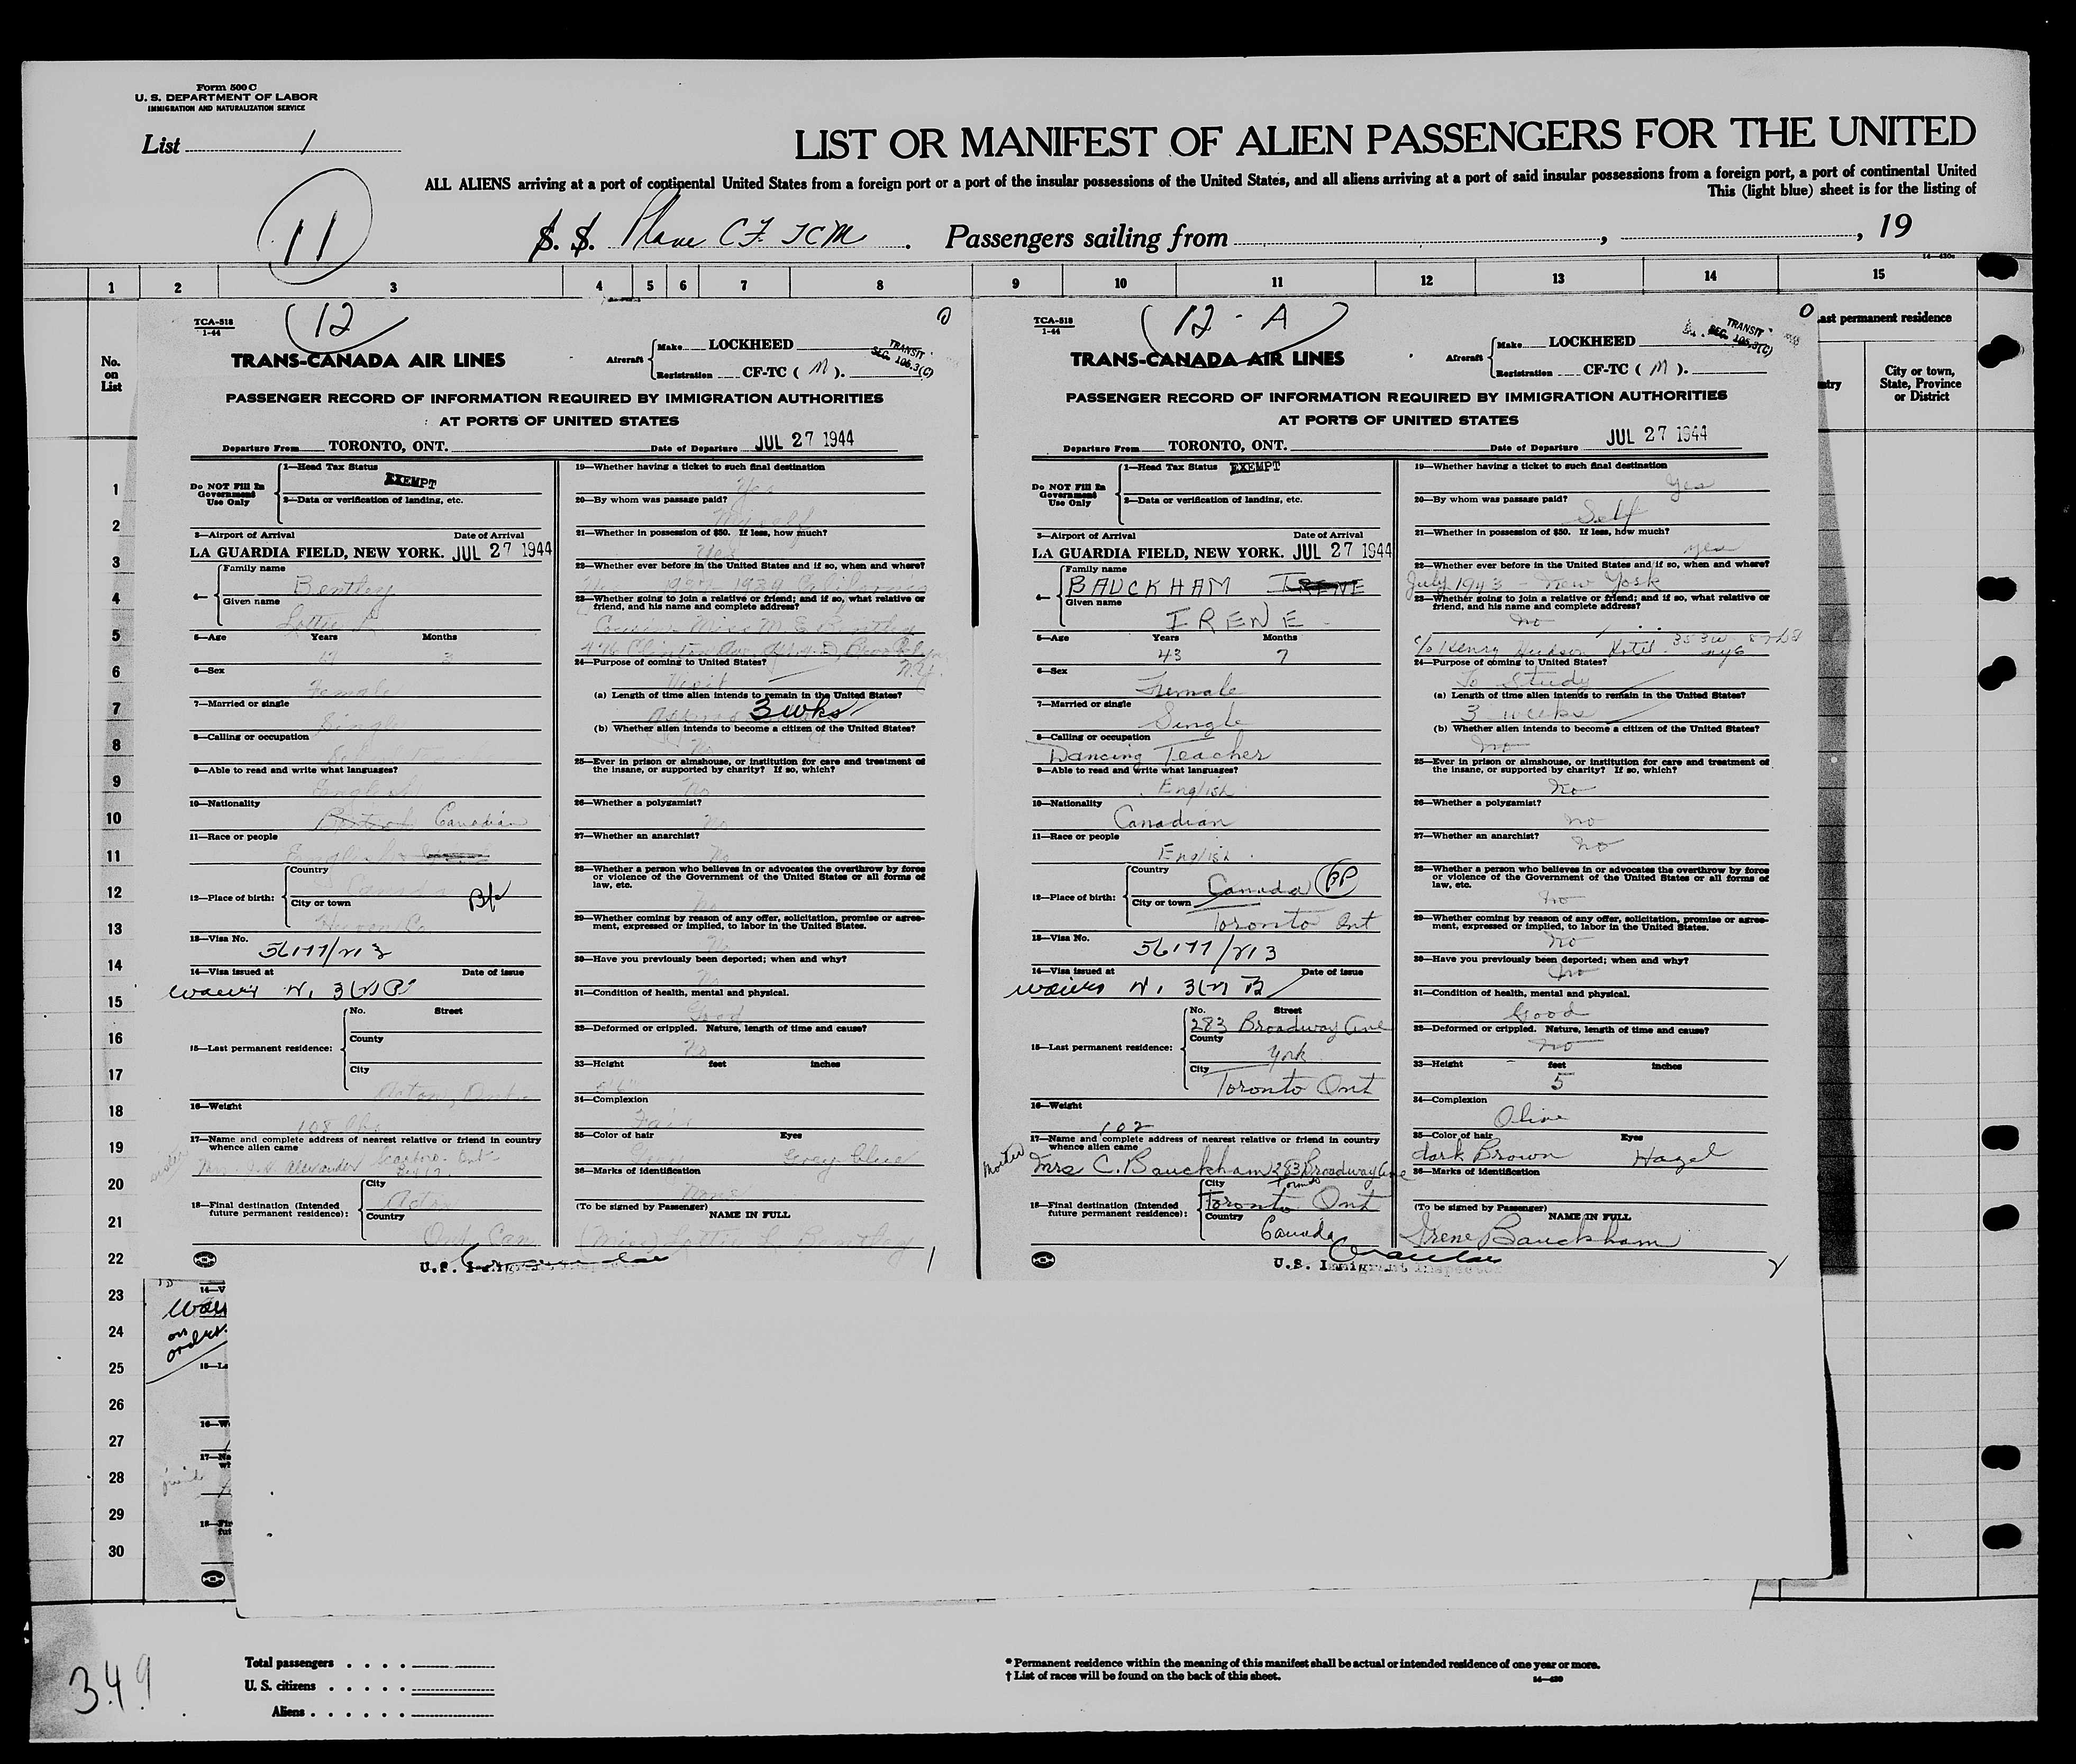 Form 500 C
U. S. DEPARTMENT OF LABOR
IMMIGRATION AND NATURALIZATION SERVICE
List 1
LIST OR MANIFEST OF ALIEN PASSENGERS FOR THE UNITED
ALL ALIENS arriving at a port of continental United States from a foreign port or a port of the insular possessions of the United States, and all aliens arriving at a port of said insular possessions from a foreign port, a port of continental United
This (light blue) sheet is for the listing of
11
S. S. Plane CF TCM . Passengers sailing from , , 19
1 2 3 4 5 6 7 8 9 10 11 12 13 14 15
No. on List
ast permanent residence
ntry
City or town, State, Province or District
TCA-518
1-44
12
TRANS-CANADA AIR LINES
Aircraft Make LOCKHEED
Registration CF-TC ( M ).
TRANSIT
SEC. 105.3(C)
PASSENGER RECORD OF INFORMATION REQUIRED BY IMMIGRATION AUTHORITIES
AT PORTS OF UNITED STATES
Departure From TORONTO, ONT. Date of Departure JUL 27 1944
Do NOT Fill In Government Use Only
1—Head Tax Status EXEMPT
2—Data or verification of landing, etc.
3—Airport of Arrival Date of Arrival
LA GUARDIA FIELD, NEW YORK. JUL 27 1944
4— Family name Bentley
Given name Lottie L
5—Age Years Months
3
6—Sex Female
7—Married or single Single
8—Calling or occupation
9—Able to read and write what languages? English
10—Nationality British Canadian
11—Race or people English
12—Place of birth: Country Canada
City or town Huron Co
13—Visa No. 5617/213
14—Visa issued at Date of issue
15—Last permanent residence: No. Street
County
City Acton, Ont.
16—Weight 108 lbs
17—Name and complete address of nearest relative or friend in country whence alien came
Alexander Scarboro Ont
18—Final destination (Intended future permanent residence): City Acton
Country Ont. Can
19—Whether having a ticket to such final destination
Yes
20—By whom was passage paid?
Myself
21—Whether in possession of $50. If less, how much?
Yes
22—Whether ever before in the United States and if so, when and where?
Yes 1937 1939 California
23—Whether going to join a relative or friend; and if so, what relative or friend, and his name and complete address?
Cousin Miss M. E. Bentley
476 Clinton Ave. Brooklyn N.Y.
24—Purpose of coming to United States?
Visit
(a) Length of time alien intends to remain in the United States?
3 wks
(b) Whether alien intends to become a citizen of the United States?
No
25—Ever in prison or almshouse, or institution for care and treatment of the insane, or supported by charity? If so, which?
No
26—Whether a polygamist?
No
27—Whether an anarchist?
No
28—Whether a person who believes in or advocates the overthrow by force or violence of the Government of the United States or all forms of law, etc.
No
29—Whether coming by reason of any offer, solicitation, promise or agreement, expressed or implied, to labor in the United States.
No
30—Have you previously been deported; when and why?
No
31—Condition of health, mental and physical.
Good
32—Deformed or crippled. Nature, length of time and cause?
No
33—Height feet inches
34—Complexion
Fair
35—Color of hair Eyes
Grey Grey Blue
36—Marks of identification
None
(To be signed by Passenger) NAME IN FULL
(Miss) Lottie L Bentley
U.S. Immigrant Inspector
1
TCA-518
1-44
12 - A
TRANS-CANADA AIR LINES
Aircraft Make LOCKHEED
Registration CF-TC ( M ).
TRANSIT
SEC. 105.3(C)
PASSENGER RECORD OF INFORMATION REQUIRED BY IMMIGRATION AUTHORITIES
AT PORTS OF UNITED STATES
Departure From TORONTO, ONT. Date of Departure JUL 27 1944
Do NOT Fill In Government Use Only
1—Head Tax Status EXEMPT
2—Data or verification of landing, etc.
3—Airport of Arrival Date of Arrival
LA GUARDIA FIELD, NEW YORK. JUL 27 1944
4— Family name BAUCKHAM IRENE
Given name IRENE
5—Age Years Months
43 7
6—Sex Female
7—Married or single Single
8—Calling or occupation Dancing Teacher
9—Able to read and write what languages? English
10—Nationality Canadian
11—Race or people English
12—Place of birth: Country Canada
City or town Toronto Ont
13—Visa No. 5617/213
14—Visa issued at Date of issue
15—Last permanent residence: No. Street 283 Broadway Ave
County York
City Toronto Ont
16—Weight 102
17—Name and complete address of nearest relative or friend in country whence alien came
Mother Mrs C. Bauckham 283 Broadway Ave
18—Final destination (Intended future permanent residence): City Toronto Ont
Country Canada
19—Whether having a ticket to such final destination
Yes
20—By whom was passage paid?
Self
21—Whether in possession of $50. If less, how much?
yes
22—Whether ever before in the United States and if so, when and where?
July 1943 - New York
23—Whether going to join a relative or friend; and if so, what relative or friend, and his name and complete address?
no
c/o Henry Hudson Hotel 353 W 57 St NYC
24—Purpose of coming to United States?
To Study
(a) Length of time alien intends to remain in the United States?
3 weeks
(b) Whether alien intends to become a citizen of the United States?
no
25—Ever in prison or almshouse, or institution for care and treatment of the insane, or supported by charity? If so, which?
No
26—Whether a polygamist?
no
27—Whether an anarchist?
No
28—Whether a person who believes in or advocates the overthrow by force or violence of the Government of the United States or all forms of law, etc.
No
29—Whether coming by reason of any offer, solicitation, promise or agreement, expressed or implied, to labor in the United States.
No
30—Have you previously been deported; when and why?
No
31—Condition of health, mental and physical.
Good
32—Deformed or crippled. Nature, length of time and cause?
no
33—Height feet inches
5
34—Complexion
Olive
35—Color of hair Eyes
dark Brown Hazel
36—Marks of identification
(To be signed by Passenger) NAME IN FULL
Irene Bauckham
U.S. Immigrant Inspector
2
1
2
3
4
5
6
7
8
9
10
11
12
13
14
15
16
17
18
19
20
21
22
23
24
25
26
27
28
29
30
349
Total passengers
U. S. citizens
Aliens
* Permanent residence within the meaning of this manifest shall be actual or intended residence of one year or more.
† List of races will be found on the back of this sheet.